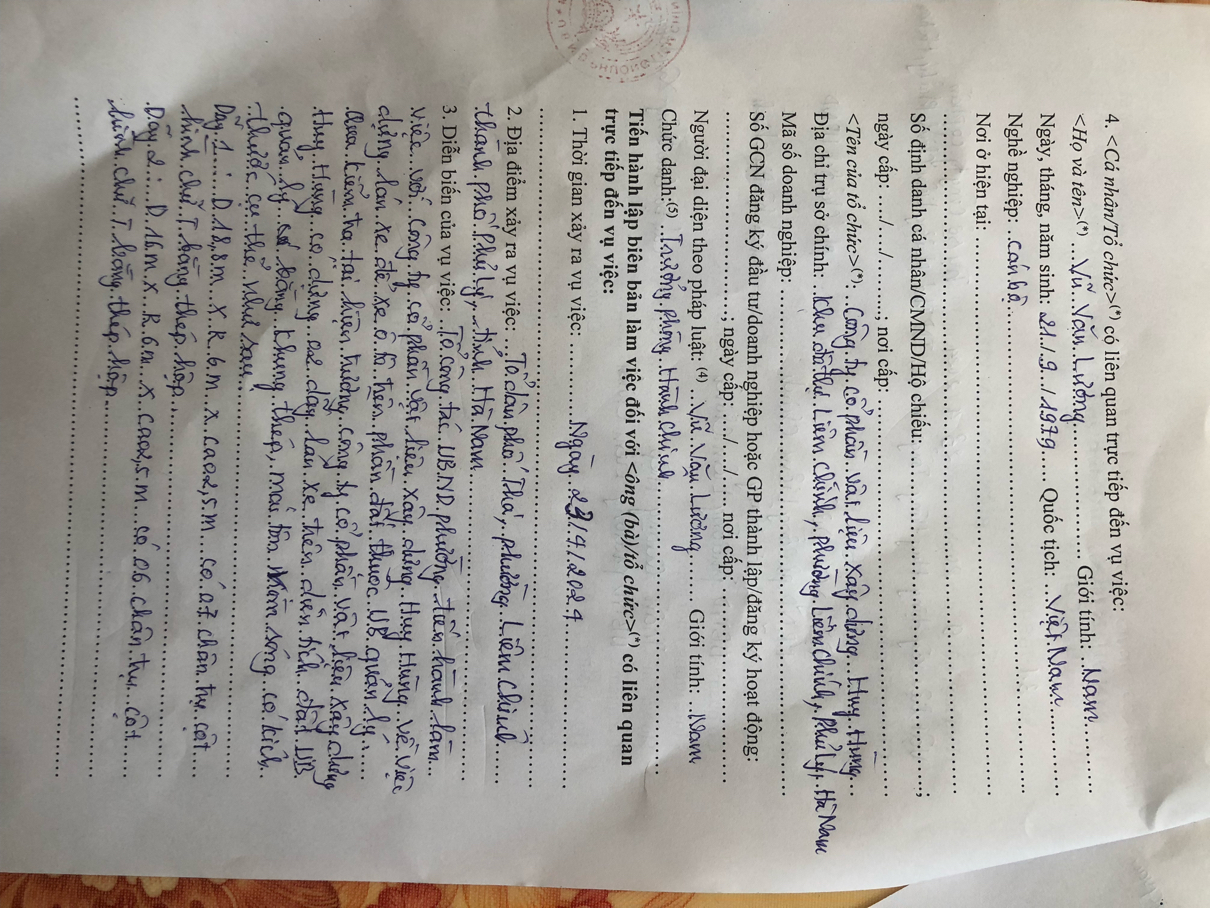 4. <Cá nhân/Tổ chức>(*) có liên quan trực tiếp đến vụ việc:
<Họ và tên>(*) ...Vũ Văn Lương.................... Giới tính: Nam.........
Ngày, tháng, năm sinh: 21./.9../1979.... Quốc tịch: Việt Nam......
Nghề nghiệp: ..cán bộ.......................................................
Nơi ở hiện tại: ................................................................
....................................................................................
Số định danh cá nhân/CMND/Hộ chiếu: ........................................;
ngày cấp: ..../..../ .......; nơi cấp: ......................................
<Tên của tổ chức>(*): ..Công ty cổ phần vật liệu xây dựng Huy Hùng...
Địa chỉ trụ sở chính: ..Khu đô thị Liêm Chính, phường Liêm Chính, Phủ Lý, Hà Nam
Mã số doanh nghiệp: ..........................................................
Số GCN đăng ký đầu tư/doanh nghiệp hoặc GP thành lập/đăng ký hoạt động:
..............................; ngày cấp: ..../..../ ..... nơi cấp: ....................
Người đại diện theo pháp luật:(4) ...Vũ Văn Lương....... Giới tính: ..Nam
Chức danh:(5) ..Trưởng phòng Hành chính..........................
Tiến hành lập biên bản làm việc đối với <ông (bà)/tổ chức>(*) có liên quan
trực tiếp đến vụ việc:
1. Thời gian xảy ra vụ việc: ..........Ngày 23/4/2024...................
....................................................................................
2. Địa điểm xảy ra vụ việc: ...Tổ dân phố Thá, phường Liêm Chính.....
thành phố Phủ Lý, tỉnh Hà Nam..........................................
3. Diễn biến của vụ việc: ..Tổ công tác UBND phường tiến hành làm...
việc với công ty cổ phần vật liệu xây dựng Huy Hùng về việc
dựng lán xe để xe ô tô trên phần đất thuộc UB quản lý...
Qua kiểm tra tại hiện trường công ty cổ phần vật liệu xây dựng
Huy Hùng có dựng 02 dãy lán xe trên diện tích đất UB
quản lý bằng khung thép, mái tôn sóng có kích.
thước cụ thể như sau.........................................
Dãy 1 : D 18,8m x R 6m x cao 2,5m có 07 chân trụ cột
hình chữ T bằng thép hộp.....................................
Dãy 2 : D 16m x R 6m x cao 2,5m có 06 chân trụ cột
hình chữ T bằng thép hộp.....................................
....................................................................................